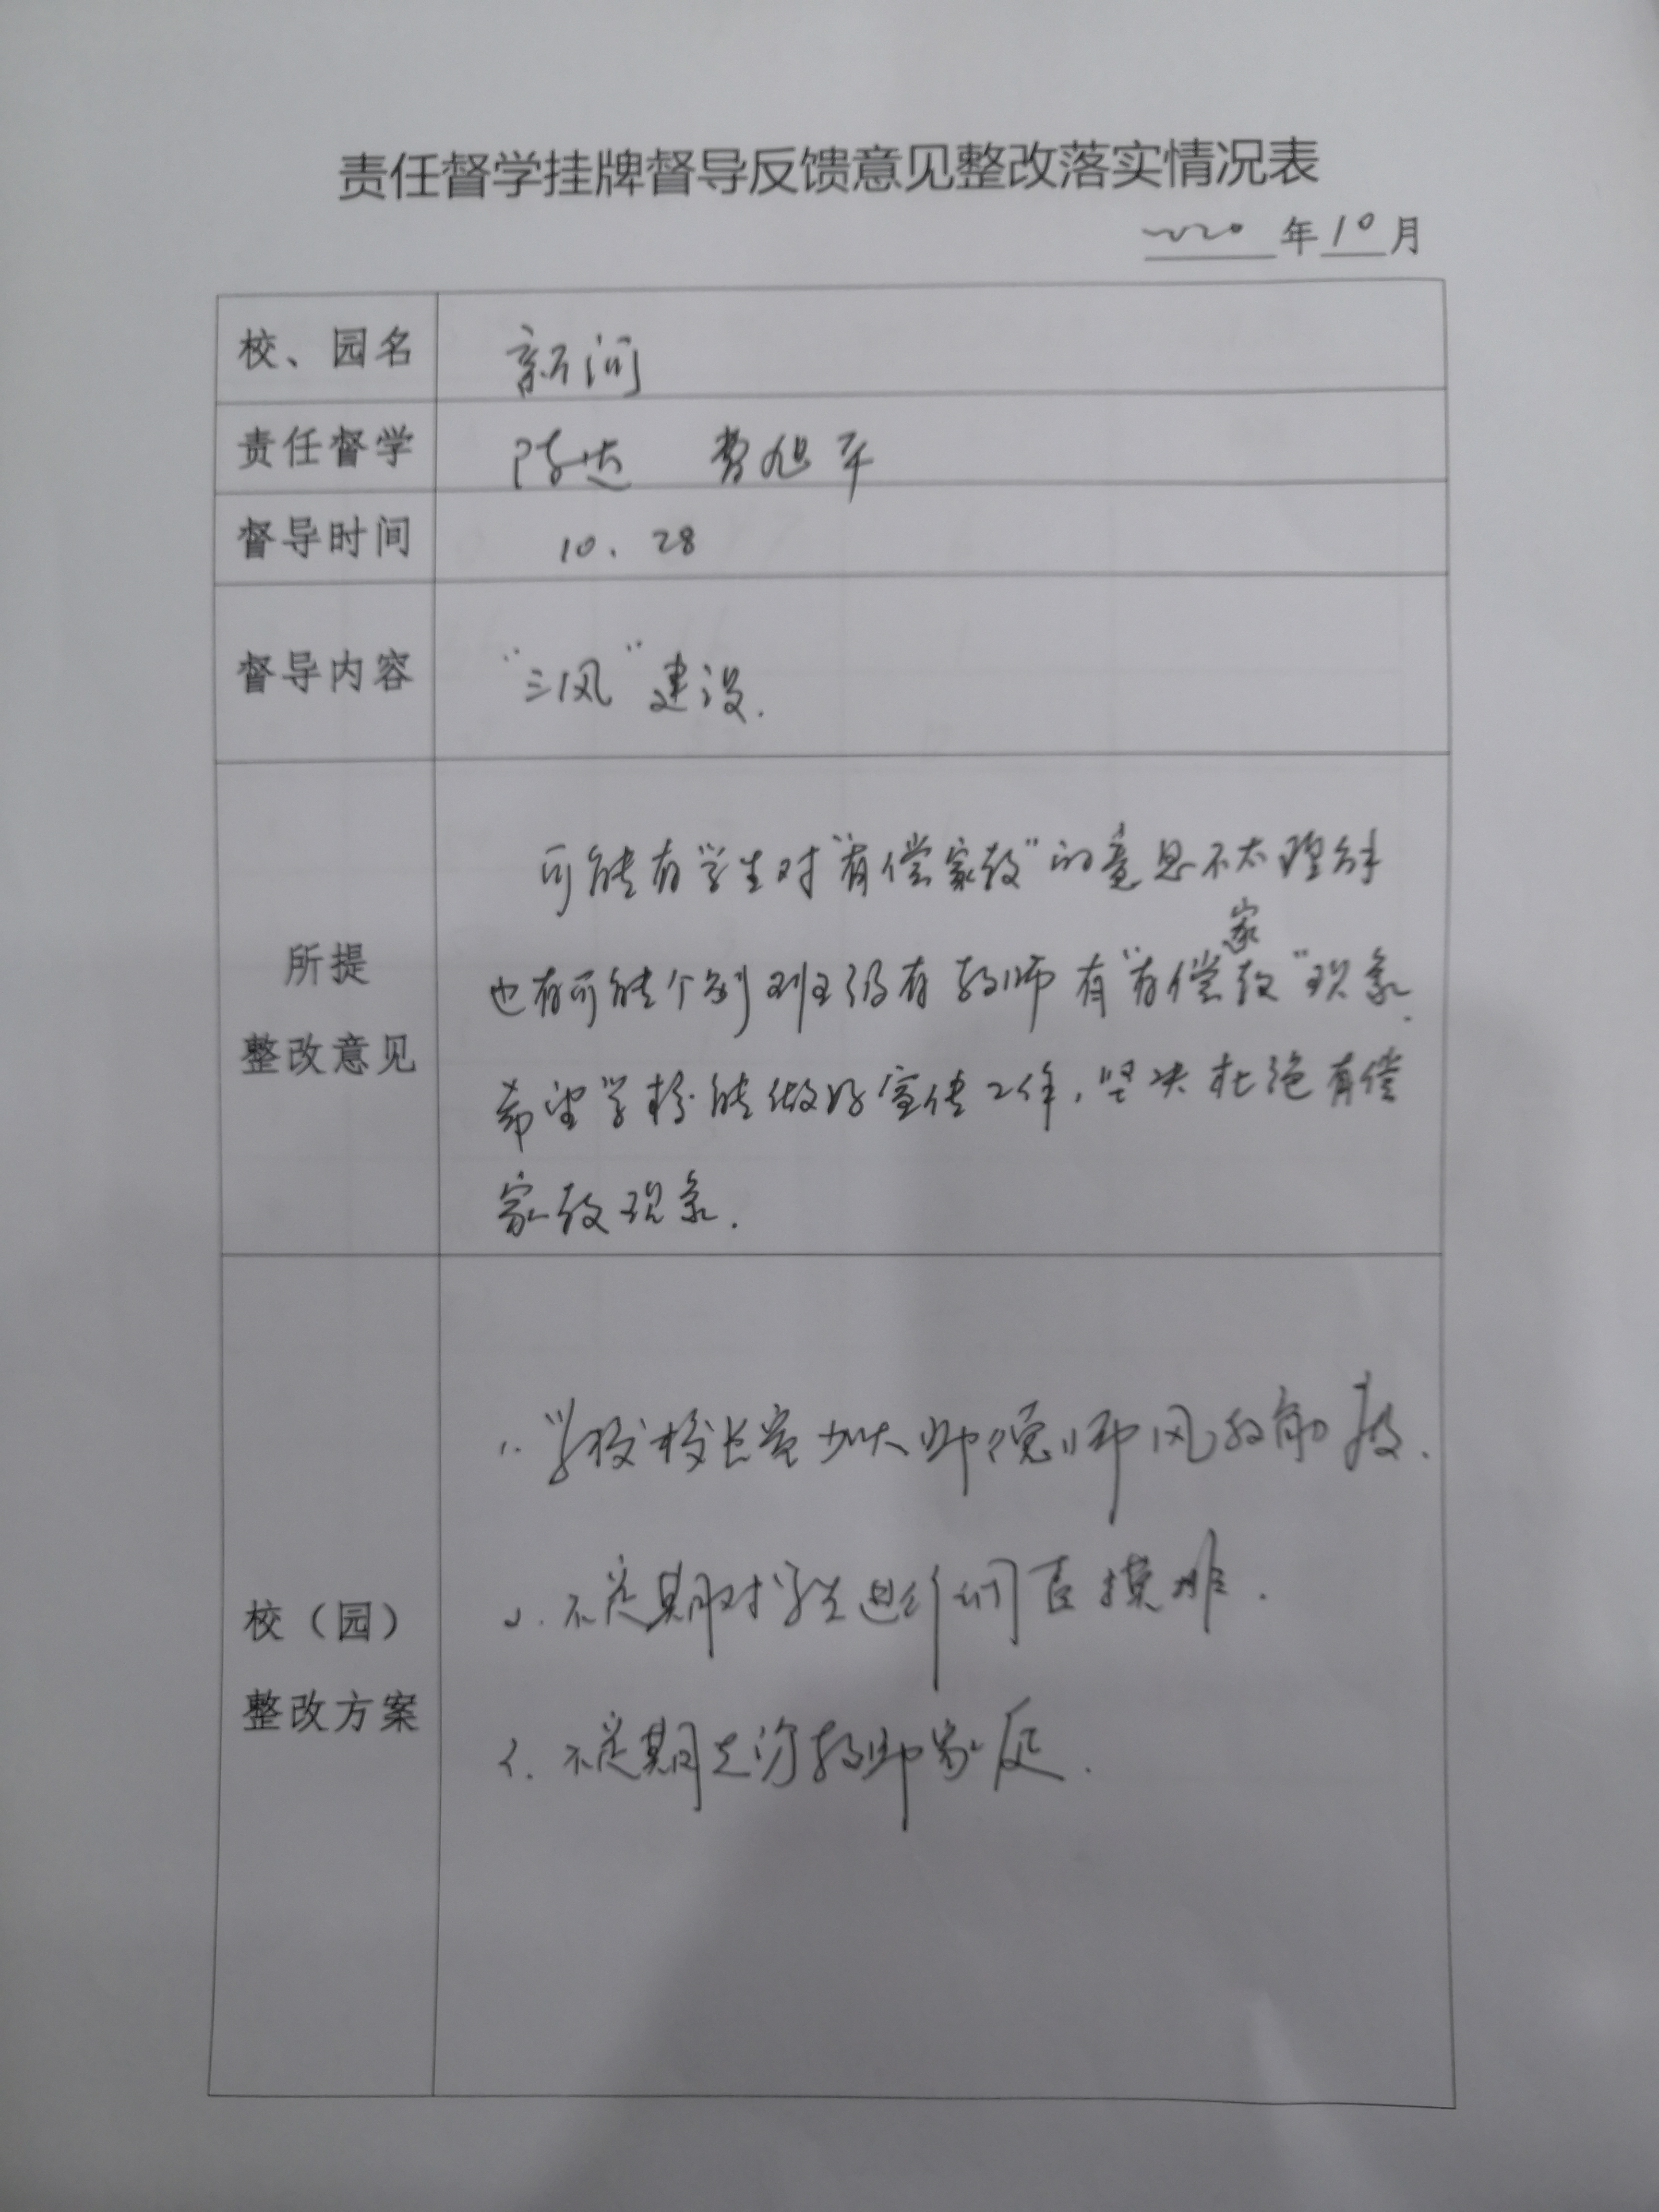 责任督学挂牌督导反馈意见整改落实情况表
2020年10月
校、园名 新闸
责任督学 陈达 曹旭平
督导时间 10.28
督导内容 “三风”建设.
所提
整改意见
可能有学生对“有偿家教”的意思不太理解
也有可能个别班级有教师有“有偿家教”现象.
希望学校能做好宣传工作,坚决杜绝有偿
家教现象.
校（园）
整改方案
1.学校校长室加大师德师风教育力度.
2.不定期对学生进行问卷摸排.
3.不定期走访教师家庭.